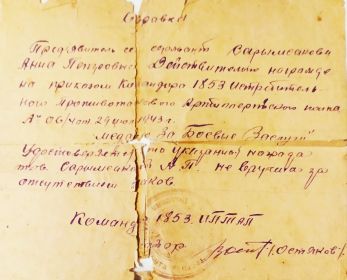 Справка
Предявитель се сержант Сарымсакова
Анна Петровна Действительно награжде
на приказом Командира 1853 Истребитель
ного Противотанкового Артиллерийского полка
№ 06/ от 29 1943 г.
"медаль За Боевые Заслуги"
Удостоверяется что указанная награда
тов. А.П. не вручена за
отсутствием знаков
Команд 1853 ИПТАП